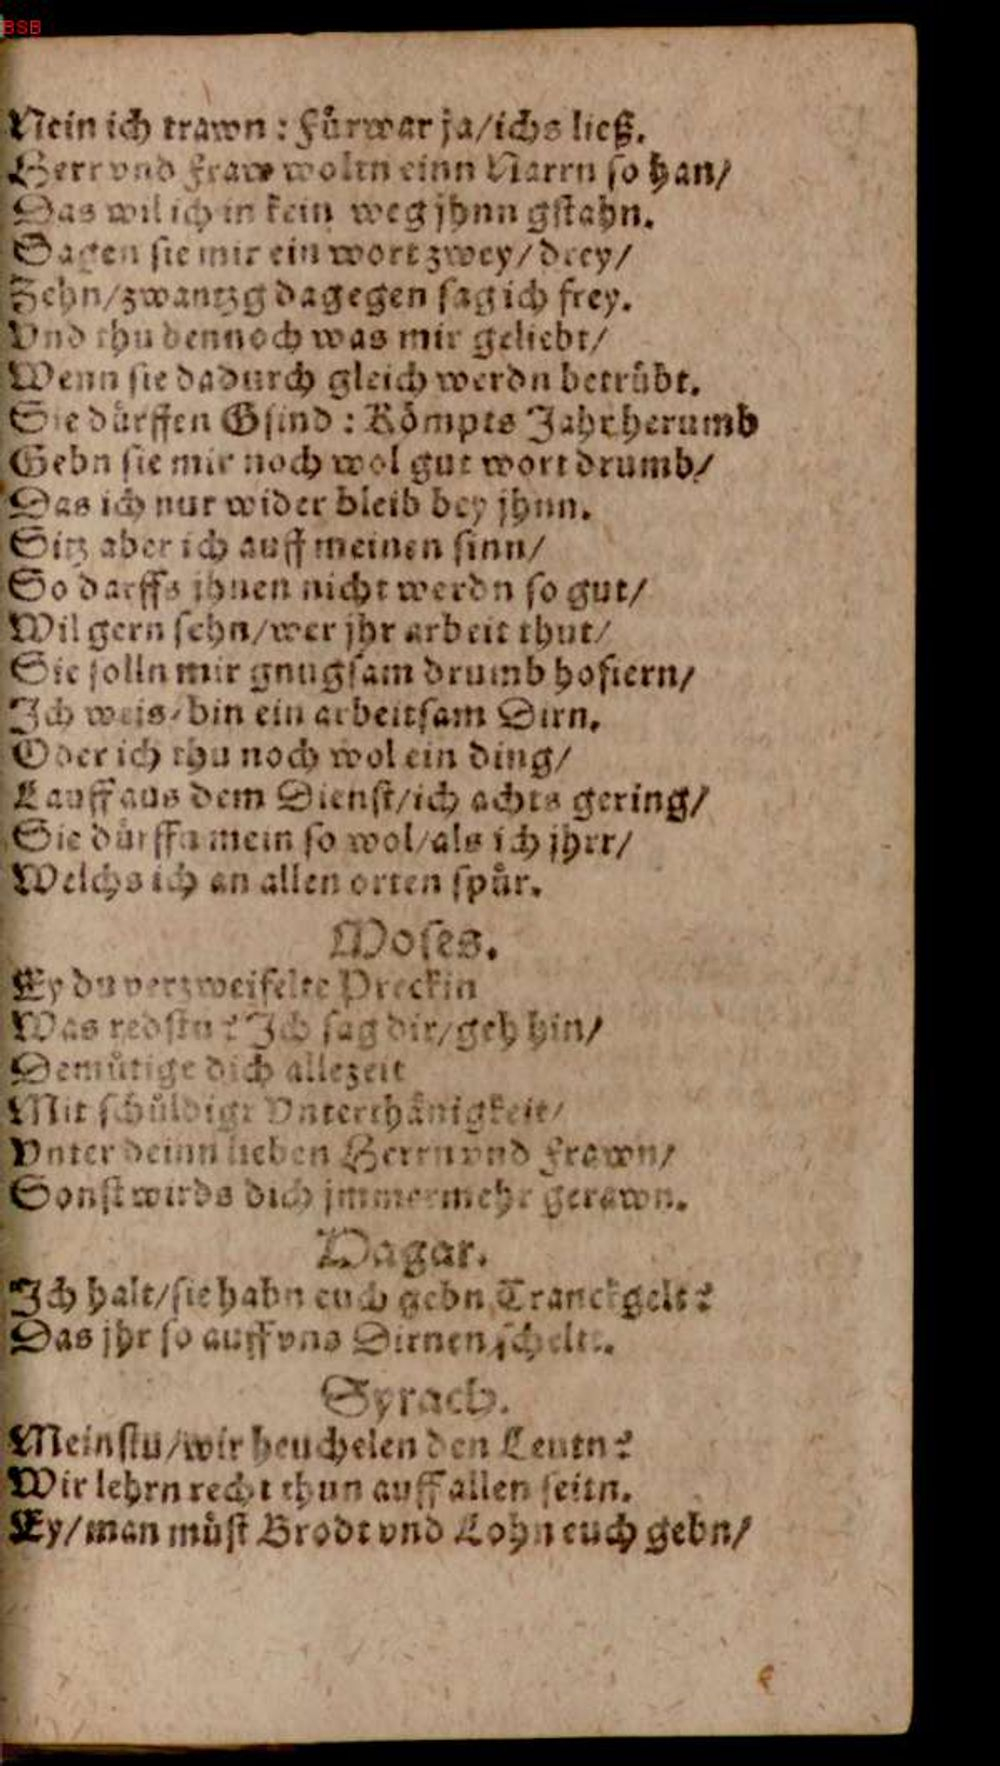 BSB
Nein ich trawn : Fürwar ja/ichs ließ.
Herr vnd Fraw woltn einn Narrn so han/
Das wil ich in kein weg jhnn gstahn.
Sagen sie mir ein wort zwey/drey/
Zehn/zwantzg dagegen sag ich frey.
Vnd thu dennoch was mir geliebt/
Wenn sie dadurch gleich werdn betrübt.
Sie dürffen Gsind : Kömpts Jahr herumb
Gebn sie mir noch wol gut wort drumb/
Das ich nur wider bleib bey jhnn.
Sitz aber ich auff meinen sinn/
So darffs jhnen nicht werdn so gut/
Wil gern sehn/wer jhr arbeit thut/
Sie solln mir gnugsam drumb hofiern/
Ich weis/bin ein arbeitsam Dirn.
Oder ich thu noch wol ein ding/
Lauff aus dem Dienst/ich achts gering/
Sie dürffn mein so wol/als ich jhrr/
Welchs ich an allen orten spür.
Moses.
Ey du verzweifelte Preckin
Was redstu? Ich sag dir/geh hin/
Demütige dich allezeit
Mit schüldigr Vnterthänigkeit/
Vnter deinn lieben Herrn vnd Frawn/
Sonst wirds dich jmmermehr gerawn.
Hagar.
Ich halt/sie habn euch gebn Tranckgelt?
Das jhr so auff vns Dirnen schelt.
Syrach.
Meinstu/wir heuchelen den Leutn?
Wir lehrn recht thun auff allen seitn.
Ey/man müst Brodt vnd Lohn euch gebn/